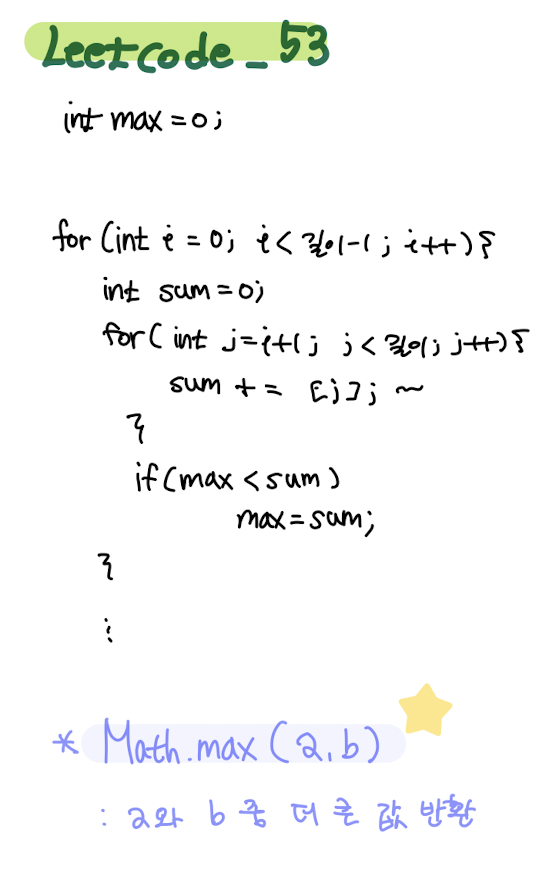 Leetcode_53
int max = 0;
for (int i = 0; i < 길이-1; i++) {
int sum = 0;
for ( int j=i+1; j < 길이; j++) {
sum += [j]; ~
}
if (max < sum)
max = sum;
}
⋮
* Math.max (a, b)
: a와 b 중 더 큰 값 반환